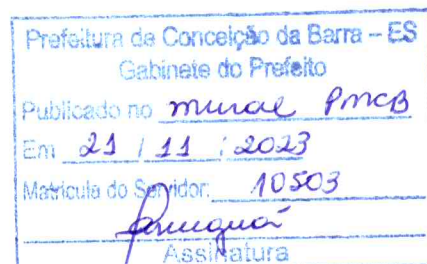 Prefeitura de Conceição da Barra – ES
Gabinete do Prefeito
Publicado no mural PMCB
Em 21 / 11 / 2023
Matrícula do Servidor: 10503
Assinatura